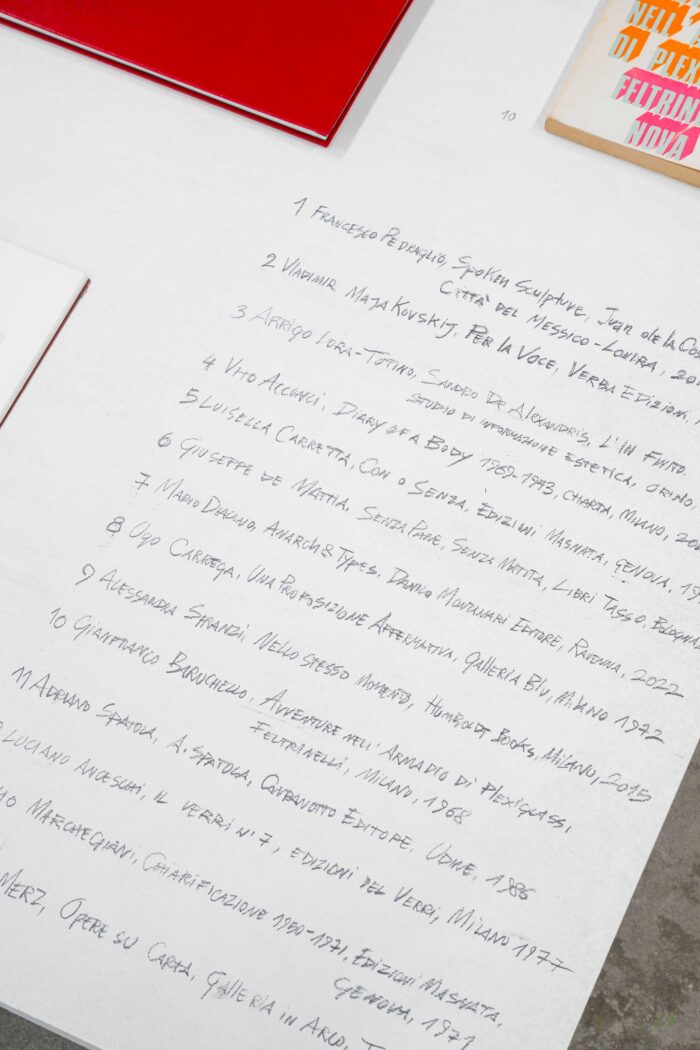 NELL'
DI PLEX
FELTRIN
NOVA
10
1 FRANCESCO PEDRAGLIO, SPOKEN SCULPTURE, JUAN DE LA COS
CITTÀ DEL MESSICO - LONDRA, 20
2 VLADIMIR MAJAKOVSKIJ, PER LA VOCE, VERBA EDIZIONI,
3 ARRIGO LORA-TOTINO, SANDRO DE ALEXANDRIS, L'IN FINITO.
STUDIO DI INFORMAZIONE ESTETICA, TORINO,
4 VITO ACCONCI, DIARY OF A BODY 1969-1973, CHARTA, MILANO, 200
5 LUISELLA CARRETTA, CON O SENZA, EDIZIONI MASNATA, GENOVA, 19
6 GIUSEPPE DE MATTIA, SENZA PANE, SENZA MATITA, LIBRI TASSO, BOLOGNA
7 MARIO DIACONO, ANARCH & TYPES, DANILO MONTANARI EDITORE, RAVENNA, 2022
8 UGO CARREGA, UNA PROPOSIZIONE AFFERMATIVA, GALLERIA BLU, MILANO 1972
9 ALESSANDRA SPRANZI, NELLO STESSO MOMENTO, HUMBOLDT BOOKS, MILANO, 2015
10 GIANFRANCO BARUCHELLO, AVVENTURE NELL'ARMADIO DI PLEXIGLASS,
FELTRINELLI, MILANO, 1968
11 ADRIANO SPATOLA, A. SPATOLA, CAMPANOTTO EDITORE, UDINE, 1986
LUCIANO ANCESCHI, IL VERRI N° 7, EDIZIONI DEL VERRI, MILANO 1977
MARCHEGIANI, CHIARIFICAZIONE 1950-1971, EDIZIONI MASNATA,
GENOVA, 1971
MERZ, OPERE SU CARTA, GALLERIA IN ARCO, T